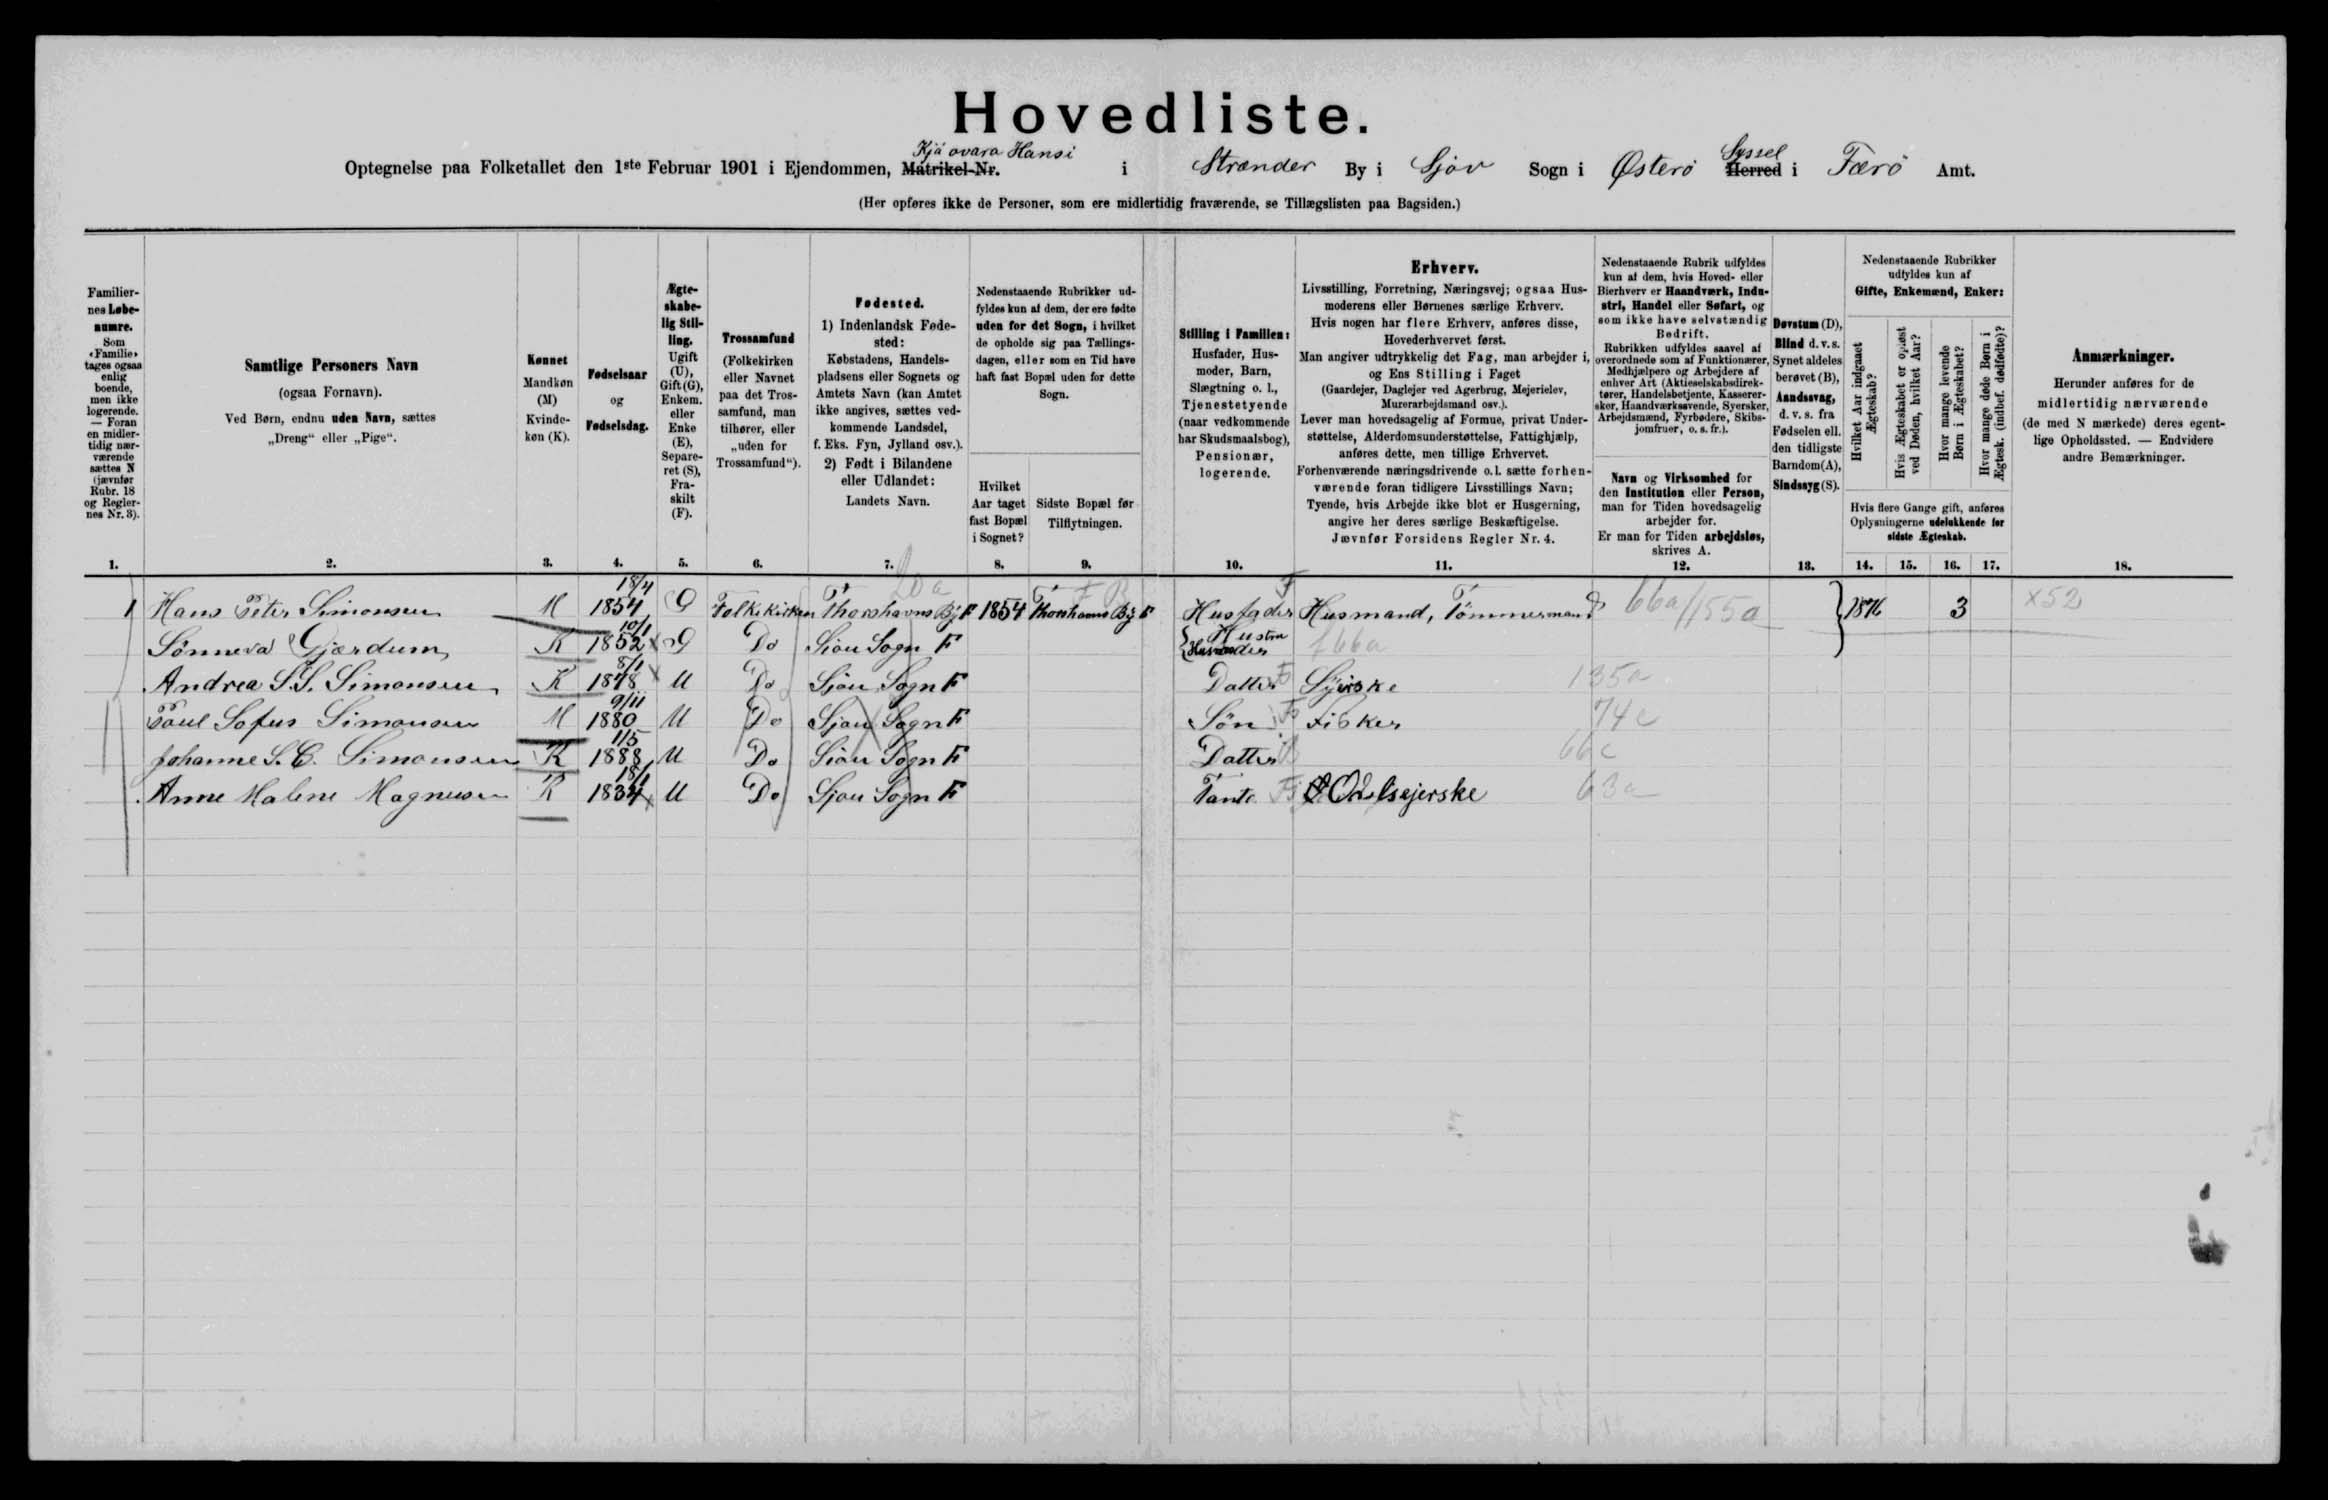 Hovedliste.
Kjá ovara Hansi
Optegnelse paa Folketallet den 1ste Februar 1901 i Ejendommen, Matrikel-Nr. i Strænder By i Sjov Sogn i Østerö Syssel Herred i Færö Amt.
(Her opføres ikke de Personer, som ere midlertidig fraværende, se Tillægslisten paa Bagsiden.)
Familier-
nes Løbe-
numre.
Som
«Familie»
tages ogsaa
enlig
boende,
men ikke
logerende.
— Foran
en midler-
tidig nær-
værende
sættes N
(jævnfør
Rubr. 18
og Regler-
nes Nr. 3).
1.
Samtlige Personers Navn
(ogsaa Fornavn).
Ved Børn, endnu uden Navn, sættes
„Dreng“ eller „Pige“.
2.
Kønnet
Mandkøn
(M)
Kvinde-
køn (K).
3.
Fødselsaar
og
Fødselsdag.
4.
Ægte-
skabe-
lig Stil-
ling.
Ugift
(U),
Gift (G),
Enkem.
eller
Enke
(E),
Separe-
ret (S),
Fra-
skilt
(F).
5.
Trossamfund
(Folkekirken
eller Navnet
paa det Tros-
samfund, man
tilhører, eller
„uden for
Trossamfund“).
6.
Fødested.
1) Indenlandsk Føde-
sted:
Købstadens, Handels-
pladsens eller Sognets og
Amtets Navn (kan Amtet
ikke angives, sættes ved-
kommende Landsdel,
f. Eks. Fyn, Jylland osv.).
2) Født i Bilandene
eller Udlandet:
Landets Navn.
7.
Nedenstaaende Rubrikker ud-
fyldes kun af dem, der ere fødte
uden for det Sogn, i hvilket
de opholde sig paa Tællings-
dagen, eller som en Tid have
haft fast Bopæl uden for dette
Sogn.
Hvilket
Aar taget
fast Bopæl
i Sognet?
8.
Sidste Bopæl før
Tilflytningen.
9.
Stilling i Familien:
Husfader, Hus-
moder, Barn,
Slægtning o. l.,
Tjenestetyende
(naar vedkommende
har Skudsmaalsbog),
Pensionær,
logerende.
10.
Erhverv.
Livsstilling, Forretning, Næringsvej; ogsaa Hus-
moderens eller Børnenes særlige Erhverv.
Hvis nogen har flere Erhverv, anføres disse,
Hovederhvervet først.
Man angiver udtrykkelig det Fag, man arbejder i,
og Ens Stilling i Faget
(Gaardejer, Daglejer ved Agerbrug, Mejerielev,
Murerarbejdsmand osv.).
Lever man hovedsagelig af Formue, privat Under-
støttelse, Alderdomsunderstøttelse, Fattighjælp,
anføres dette, men tillige Erhvervet.
Forhenværende næringsdrivende o.l. sætte forhen-
værende foran tidligere Livsstillings Navn;
Tyende, hvis Arbejde ikke blot er Husgerning,
angive her deres særlige Beskæftigelse.
Jævnfør Forsidens Regler Nr. 4.
11.
Nedenstaaende Rubrik udfyldes
kun af dem, hvis Hoved- eller
Bierhverv er Haandværk, Indu-
stri, Handel eller Søfart, og
som ikke have selvstændig
Bedrift.
Rubrikken udfyldes saavel af
overordnede som af Funktionærer,
Medhjælpere og Arbejdere af
enhver Art (Aktieselskabsdirek-
tører, Handelsbetjente, Kasserer-
sker, Haandværkssvende, Syersker,
Arbejdsmænd, Fyrbødere, Skibs-
jomfruer, o. s. fr.).
Navn og Virksomhed for
den Institution eller Person,
man for Tiden hovedsagelig
arbejder for.
Er man for Tiden arbejdsløs,
skrives A.
12.
Døvstum (D),
Blind d. v. s.
Synet aldeles
berøvet (B),
Aandssvag,
d. v. s. fra
Fødselen ell.
den tidligste
Barndom (A),
Sindssyg (S).
13.
Nedenstaaende Rubrikker
udfyldes kun af
Gifte, Enkemænd, Enker:
Hvilket Aar indgaaet
Ægteskab?
Hvis Ægteskabet er opløst
ved Døden, hvilket Aar?
Hvor mange levende
Børn i Ægteskabet?
Hvor mange døde Børn i
Ægtesk. (indbef. dødfødte)?
Hvis flere Gange gift, anføres
Oplysningerne udelukkende for
sidste Ægteskab.
14. 15. 16. 17.
Anmærkninger.
Herunder anføres for de
midlertidig nærværende
(de med N mærkede) deres egent-
lige Opholdssted. — Endvidere
andre Bemærkninger.
18.
1 Hans Peter Simonsen M 18/4 1854 G Folkekirken Thorshavns By F 1854 Thorshavns By F Husfader Husmand, Tömmermand 66a/155a 1876 3 x52
Sönneva Gjærdum K 10/1 1852 G Do Sjou Sogn F Hustru Husmoder f 66a
Andrea S.S. Simonsen K 8/1 1878 U Do Sjou Sogn F Datter Syerske 135a
Poul Sofus Simonsen M 9/11 1880 U Do Sjou Sogn F Søn Fisker 74c
Johanne S.C. Simonsen K 1/5 1888 U Do Sjou Sogn F Datter 66c
Anne Malene Magnusen K 18/1 1834 U Do Sjou Sogn F Tante Odelsejerske 63a